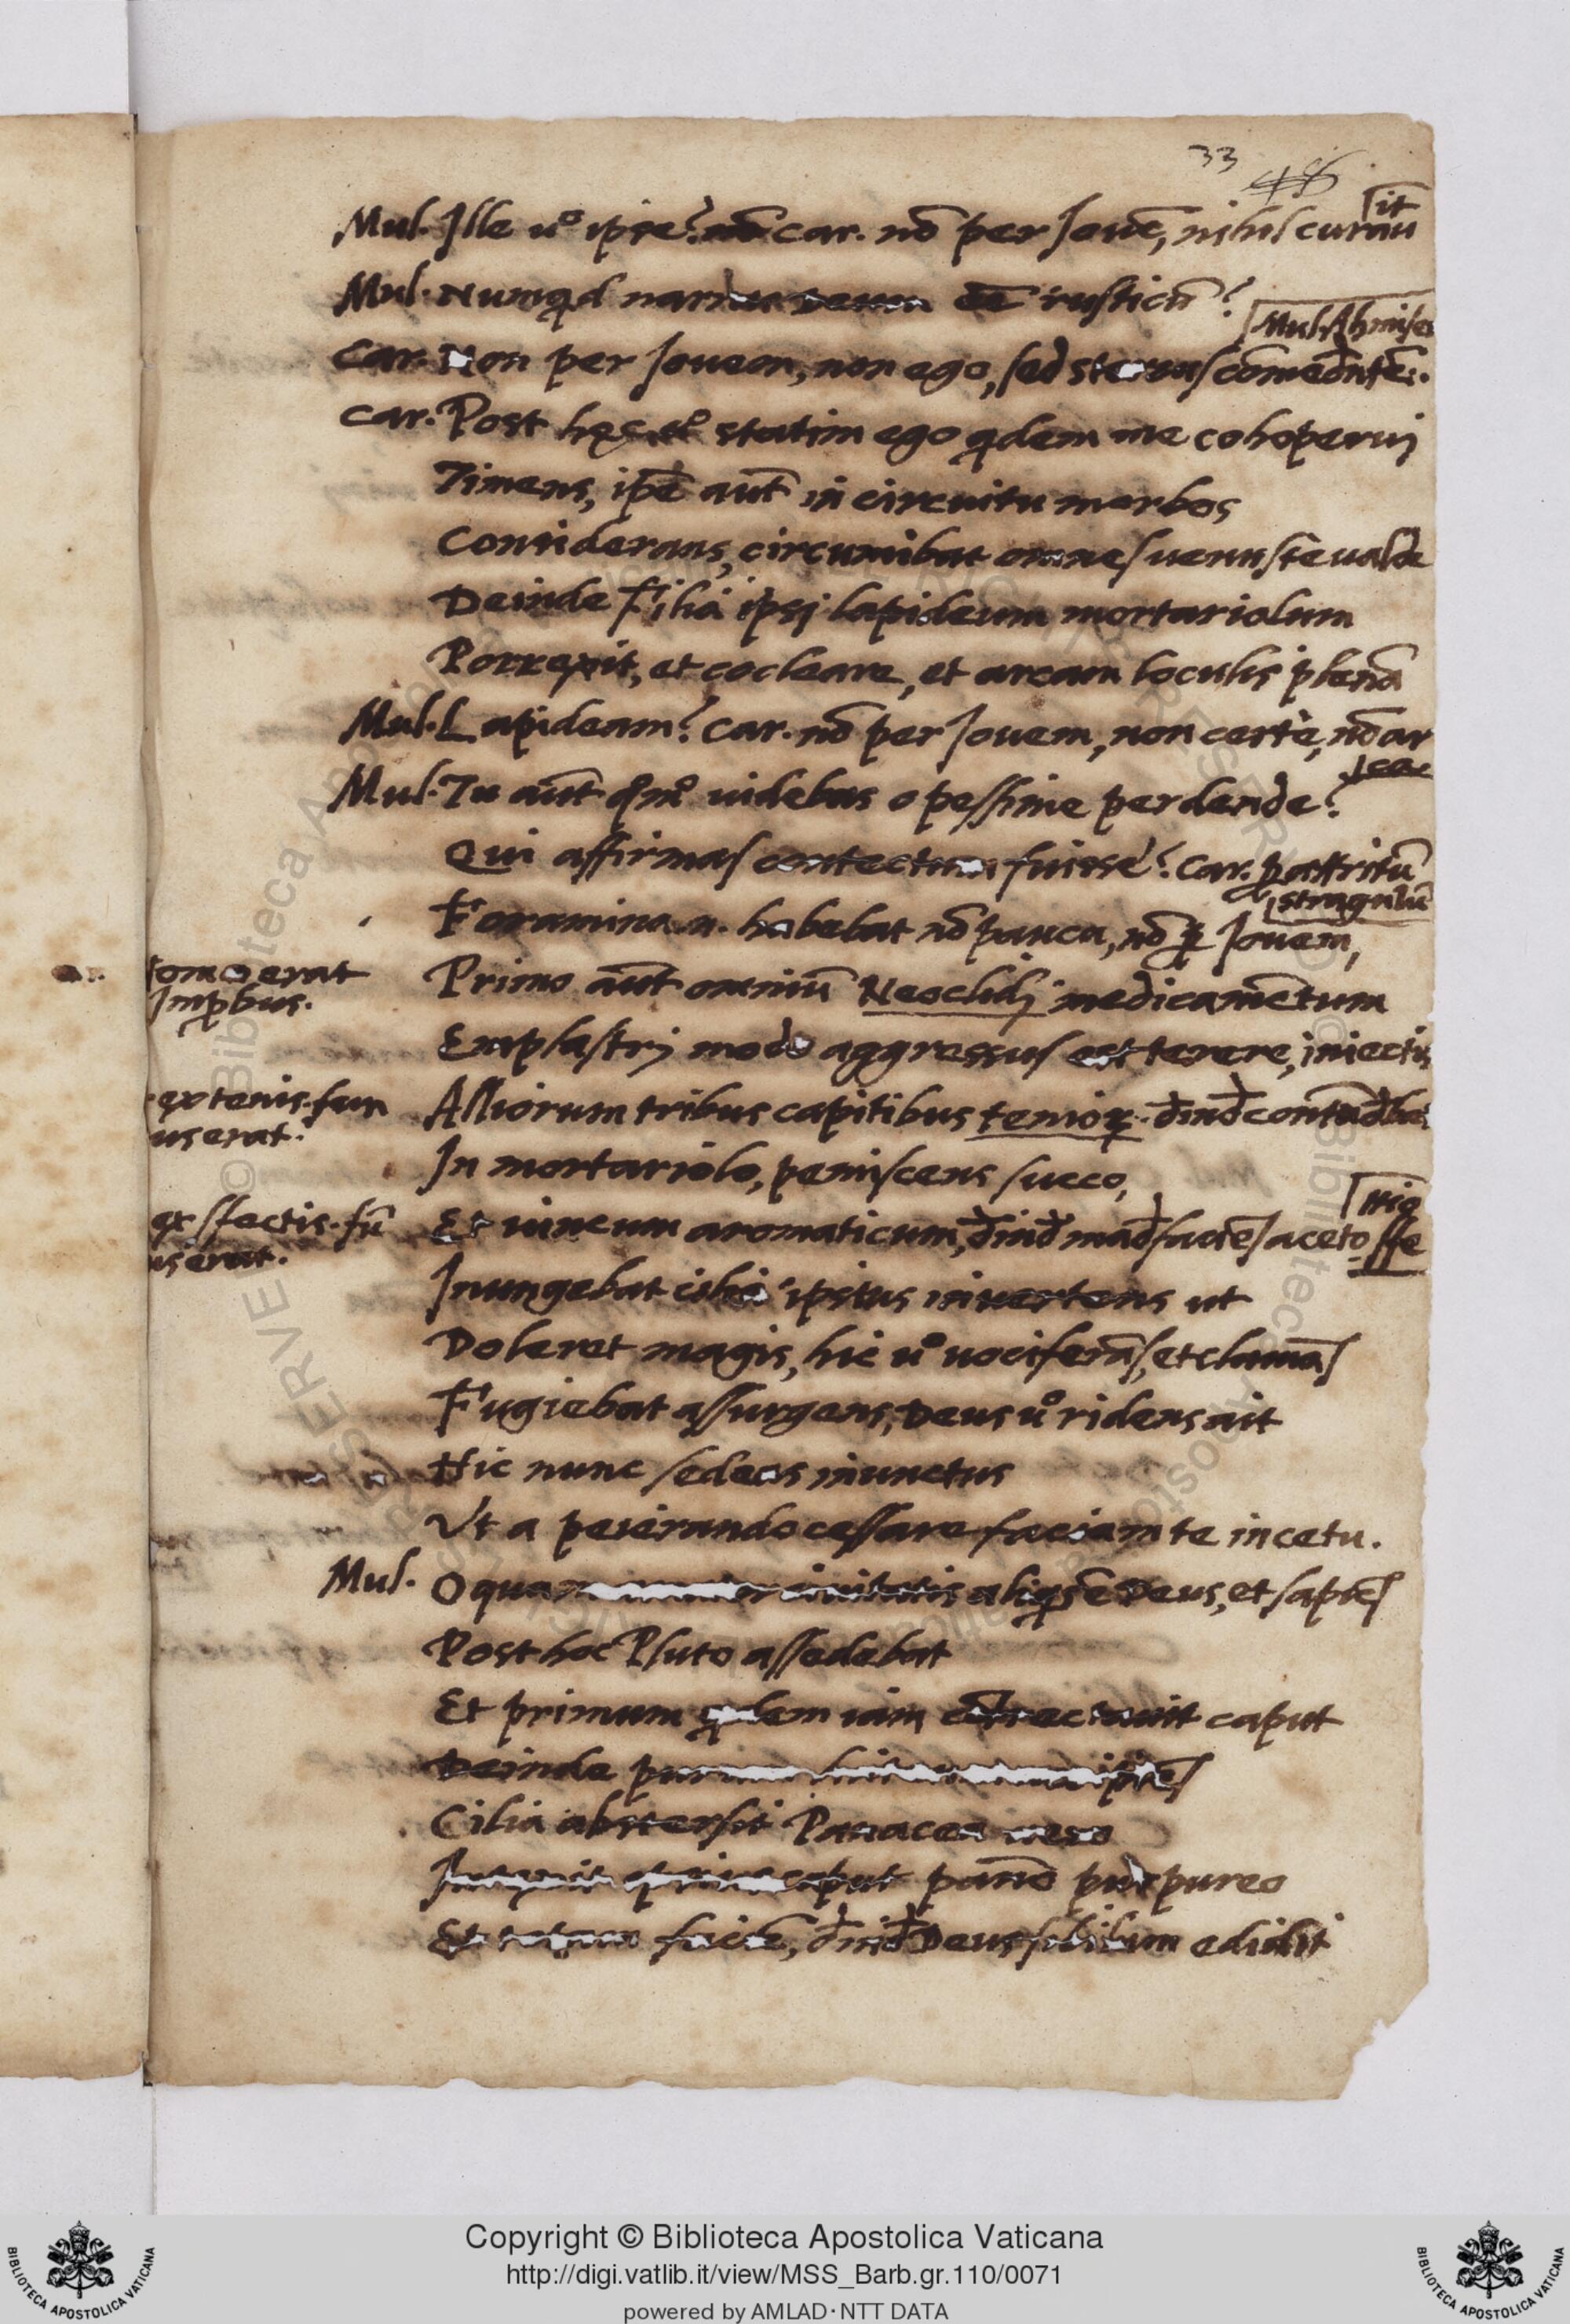 33 48
Mul. Ille uº ipse? car. nō per Jouē, nihil curau
it
Mul. Numqd narras deum eē rusticū?
Mul. Ah miser
Car. Non per Jouem, non ego, sed stercus comednte.
Car. Post hęc uº statim ego qdem me cohoperui
Timens, ipē aūt in circuitu morbos
Considerans, circumibat omnes uenuste ualde
Deinde Filia ipsi lapideum mortariolum
Porrexit, et cocleare, et arcam loculis plenā
Mul. Lapideam? Car. nō per Jouem, non certè, nō ar
cā
Mul. Tu aūt qmº uidebas o pessime perdende?
Qui affirmas contectum fuisse? Car. p attritū
stragulū
Foramina .n. habebat nō pauca, nō p Jouem,
Primo aūt omniū Neoclidj medicamētum
Emplastrj modo aggressus est terere, iniectis
Alliorum tribus capitibus tenioꝝ. dīnd contudba
In mortariolo, pemiscens succo,
ttio
Et iuncum aromaticum, dīnd madfactēs aceto sfe
Inungebat cilia ipsius inuertens ut
Doleret magis, hic uº uociferās, et clamās
Fugiebat assurgens, Deus uº ridens ait
Hic nunc sedeas inunctus
Ut a peierando cessare faciam te in cetu.
Mul. O quam ciuitatis aliqs ē Deus, et sapiēs
Post hoc Pluto assedebat
Et primum qdem iam cōtrectauit caput
Deinde
Cilia abstersit Panacea uero
caput pano purpureo
Et totam faciē, dīnd Deus sibilum edidit
tomo erat
Impbus.
ex tenis. fun
us erat.
ex sfectis. fū
us erat.
RISERVE © Biblioteca Apostolica Vaticana
Copyright © Biblioteca Apostolica Vaticana
http://digi.vatlib.it/view/MSS_Barb.gr.110/0071
powered by AMLAD·NTT DATA
BIBLIOTECA APOSTOLICA VATICANA
BIBLIOTECA APOSTOLICA VATICANA